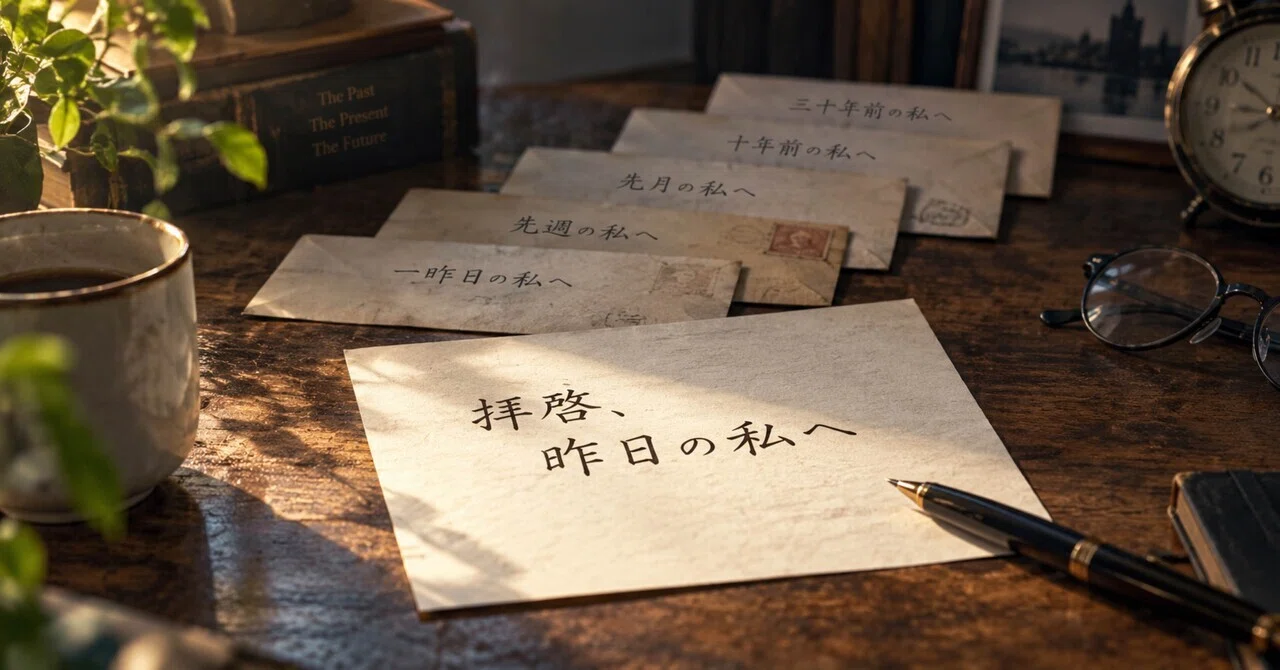 The Past
The Present
The Future
三十年前の私へ
十年前の私へ
先月の私へ
先週の私へ
一昨日の私へ
拝啓、
昨日の私へ
11
10
9
8
7
6